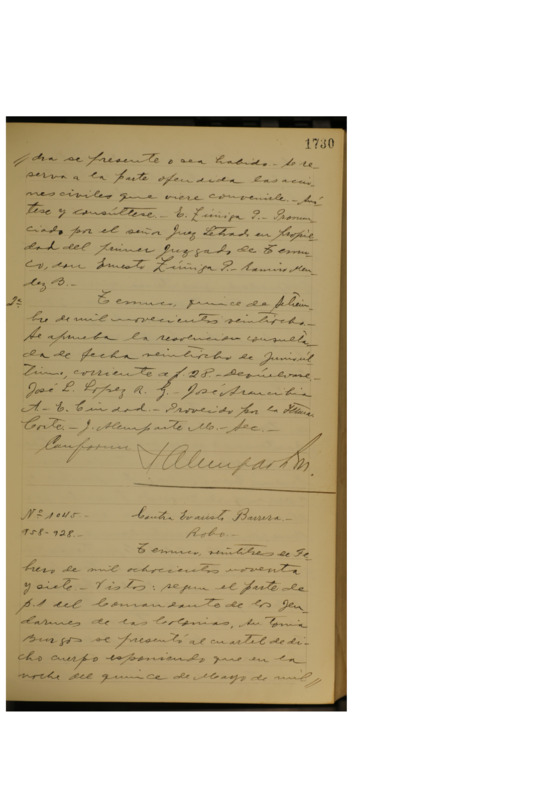 1730
// dra se presente o sea habido.- Se re-
serva a la parte ofendida las accio-
nes civiles que viere convenirle.- Anó-
tese y consúltese.- E. Zúñiga P.- Pronun-
ciado por el señor Juez Letrado en propie-
dad del primer Juzgado de Temu-
co, don Ernesto Zúñiga P.- Ramiro Mén-
dez B.-
2ª Temuco, quince de Setiem-
bre de mil novecientos veintiocho.-
Se aprueba la resolución consulta-
da de fecha veintiocho de Junio úl-
timo, corriente a f. 28.- Devuélvase.-
José L. López R. G.- José Arancibia
A.- E. Ciudad.- Proveído por la Iltma.
Corte.- J. Alemparte M.- Sec.-
Conforme
J Alemparte M.
Nº 1045.- Contra Evaristo Barrera.-
958-928.- Robo.-
Temuco, veintitres de Fe-
brero de mil ochocientos noventa
y siete.- Vistos: segun el parte de
f. 1 del Comandante de los Jen-
darmes de las Colonias, Antonia
Burgos se presentó al cuartel de di-
cho cuerpo esponiendo que en la
noche del quince de Mayo de mil //